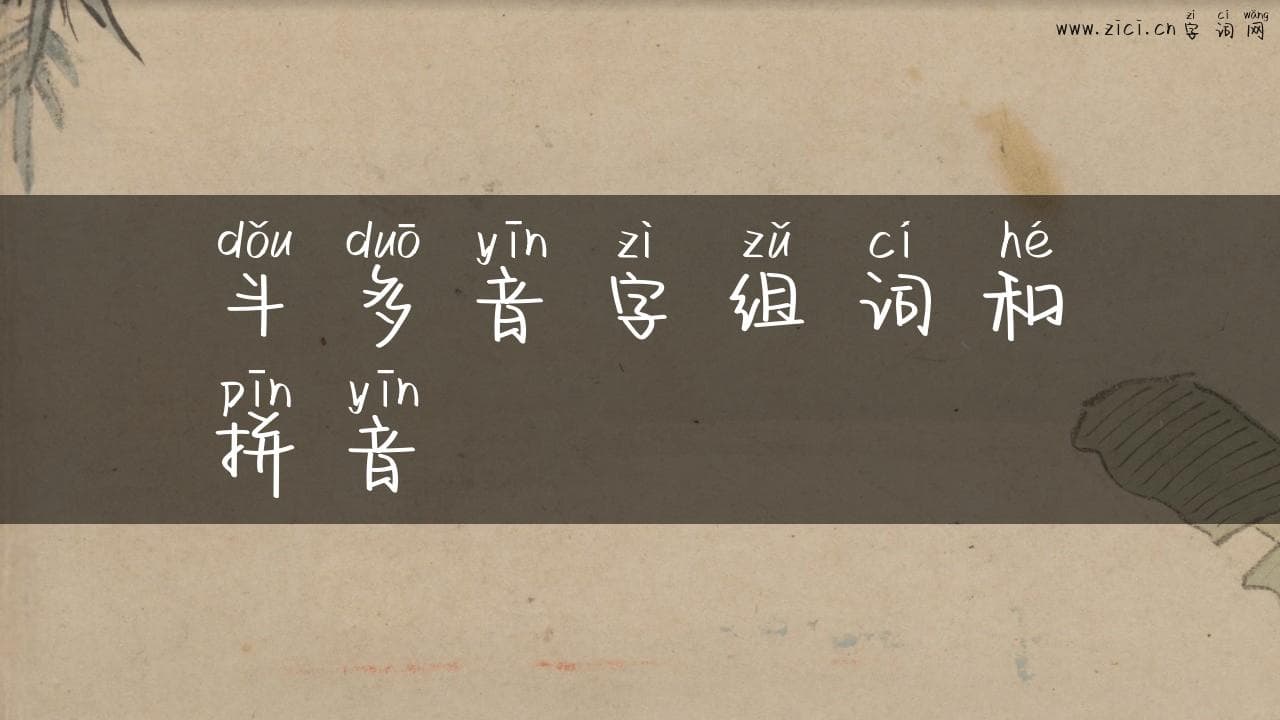 zì cí wǎng
www.zici.cn 字词网
dǒu duō yīn zì zǔ cí hé
斗多音字组词和
pīn yīn
拼音